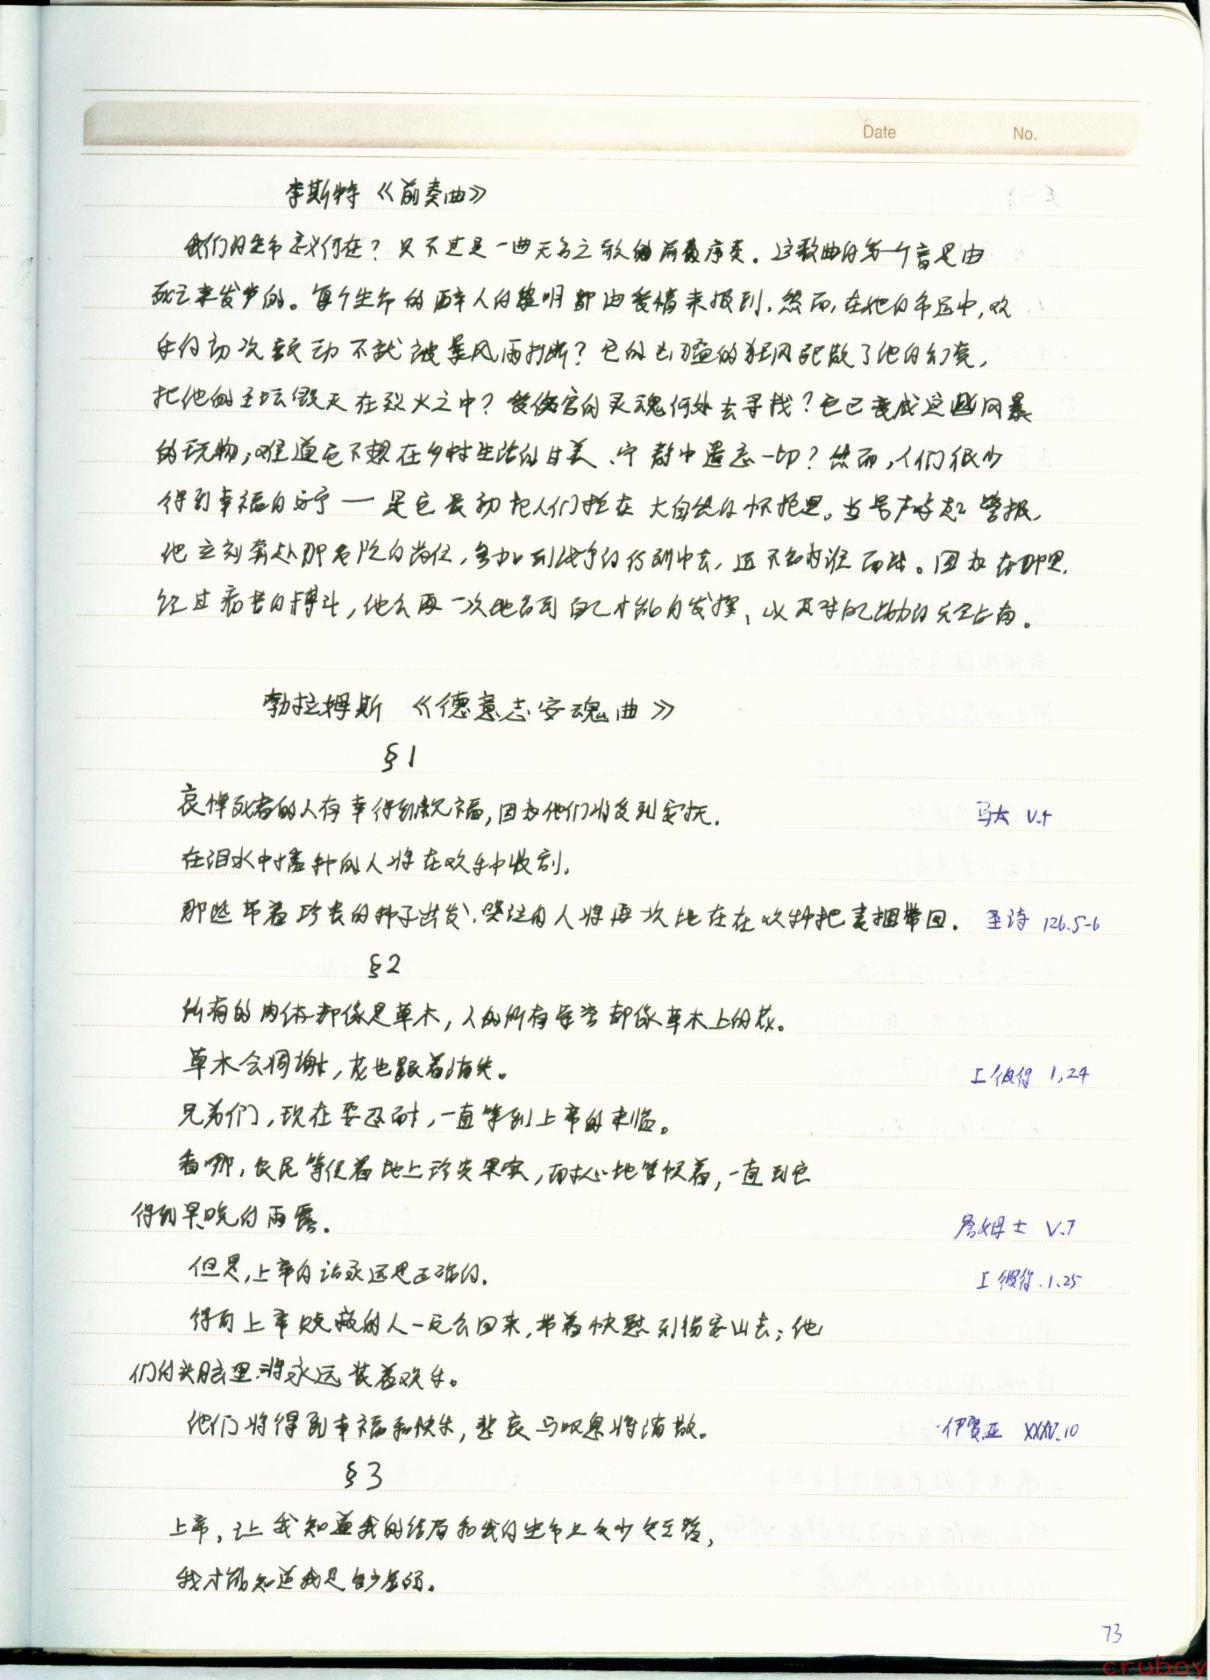 Date No.
李斯特《前奏曲》
我们的生命意义何在？只不过是一曲无名之歌的前奏序奏。这歌曲的第一个音是由
死亡来发声的。每个生命的醉人的黎明都由爱情来报到。然而，在他的命运中，欢
乐的初次颤动不就被暴风雨打断？它的狂风驱散了他的幻觉，
把他的圣坛毁灭在烈火之中？受伤害的灵魂何处去寻找？它已变成这些风暴
的玩物，难道它不想在乡村生活的甘美、宁静中遗忘一切？然而，人们很少
得到幸福的安宁——是它最初把人们拴在大自然的怀抱里。当号声响起警报，
他立刻奔赴那危险的岗位，参加到战争的行列中去，而不论为谁而战。因为在那里，
经过的搏斗，他会再一次地看到自己才能的发挥，以及对自己的完全占有。
勃拉姆斯 《德意志安魂曲》
§1
哀悼死者的人有幸得到祝福，因为他们将受到安抚。 马太 V.4
在泪水中播种的人将在欢乐中收割。
那些带着珍贵的种子出发，哭泣的人将再次地在在欢快把麦捆带回。 圣诗 126.5-6
§2
所有的肉体都像是草木，人的所有荣誉都像草木上的花。
草木会凋谢，花也跟着消失。 I 彼得 1,24
兄弟们，现在要忍耐，一直等到上帝的来临。
看哪，农民等候着地上珍贵果实，耐心地等候着，一直到它
得到早晚的雨露。 詹姆士 V.7
但是，上帝的话永远是正确的。 I 彼得.1.25
得到上帝赎救的人一定会回来，带着快慰到锡安山去；他
们的头脑里将永远装着欢乐。
他们将得到幸福和快乐，悲哀与叹息将消散。 伊赛亚 XXXV.10
§3
上帝，让我知道我的结局和我的生命上多少，
我才能知道我是多么虚弱。
73
cruboy